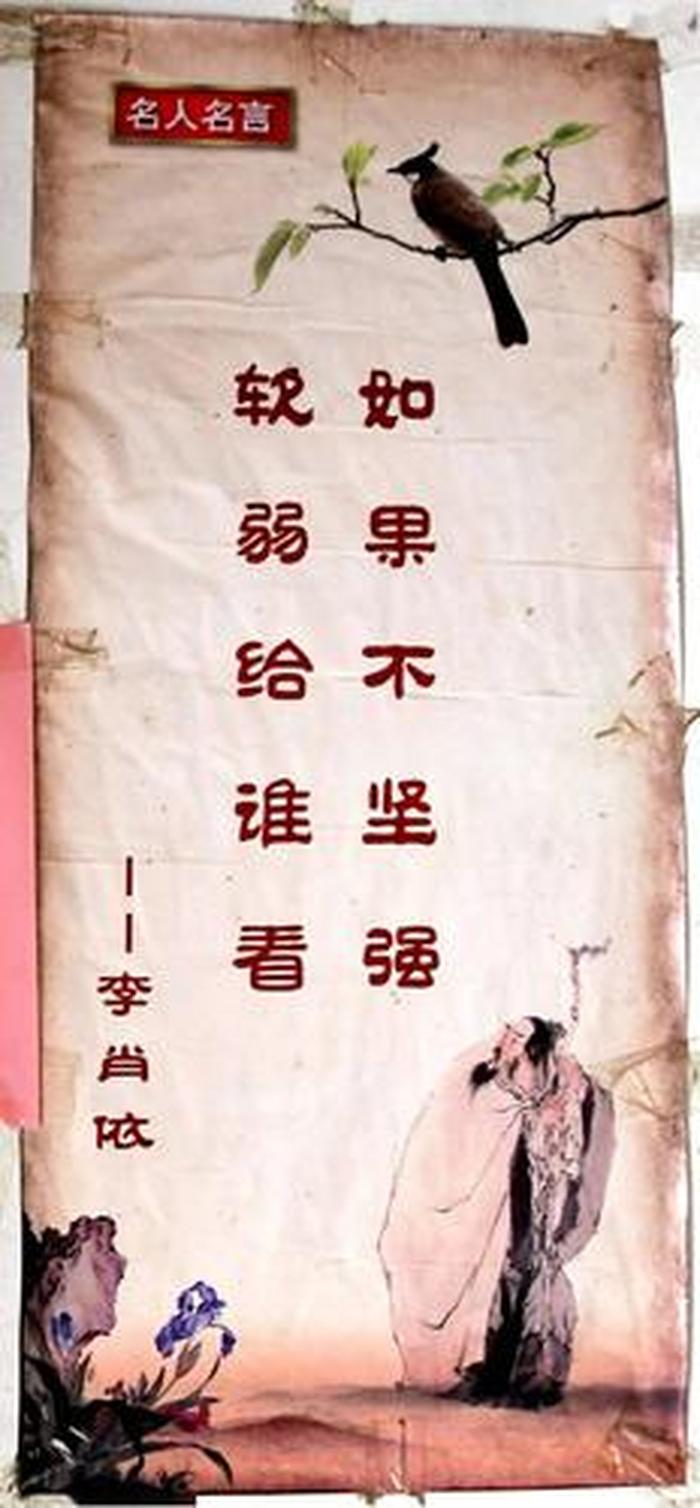 名人名言
如果不坚强
软弱给谁看
——李肖依